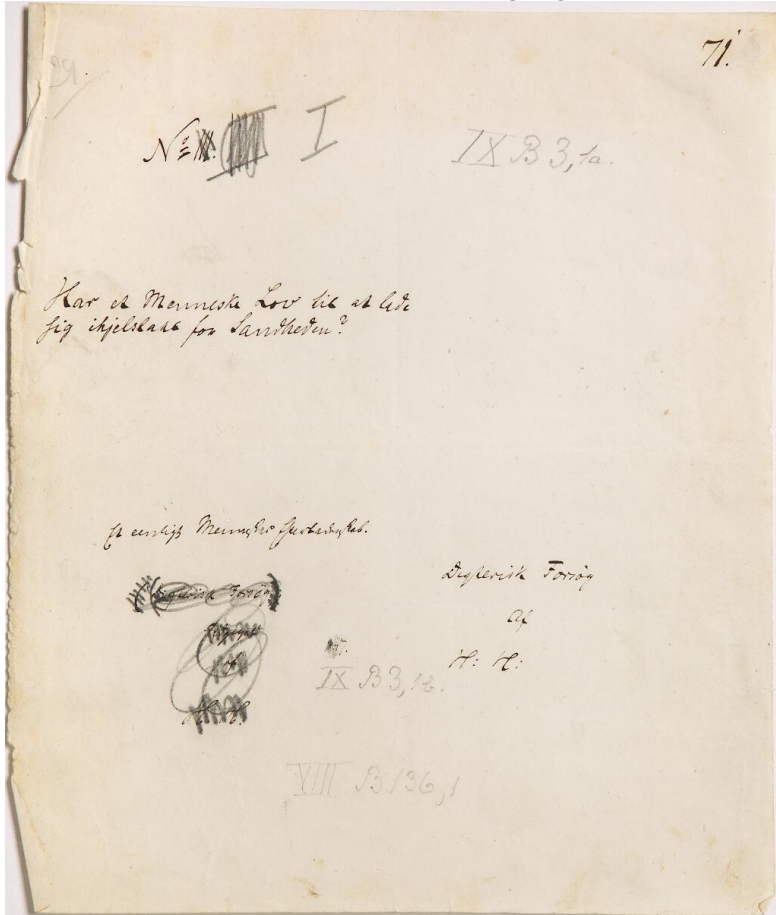 71.
29.
No I
IX B 3, 1a.
Har et Menneske Lov til at lade
sig ihjelslaae for Sandheden?
Et eensligt Menneskes Efterladenskab.
Digterisk Forsøg
(Digterisk Forsøg)
Af
H: H:
IX B 3, 1b.
H. H.
VIII B 136, 1